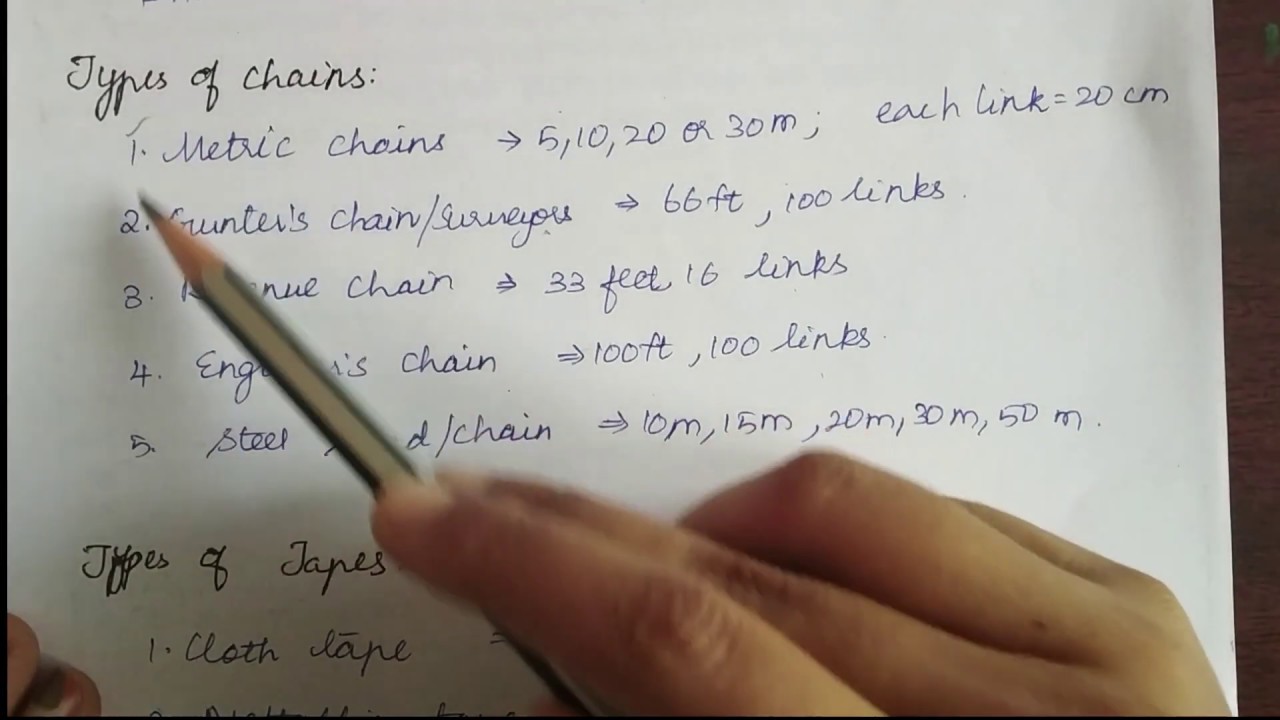 Types of chains:
1. Metric chains → 5,10,20 or 30m; each link = 20 cm
2. Gunter's chain/surveyors ⇒ 66ft, 100 links.
3. chain ⇒ 33 feet 16 links
4. chain ⇒ 100ft, 100 links.
5. Steel d/chain ⇒ 10m, 15m, 20m, 30m, 50 m.
Types of Tapes
1. Cloth tape